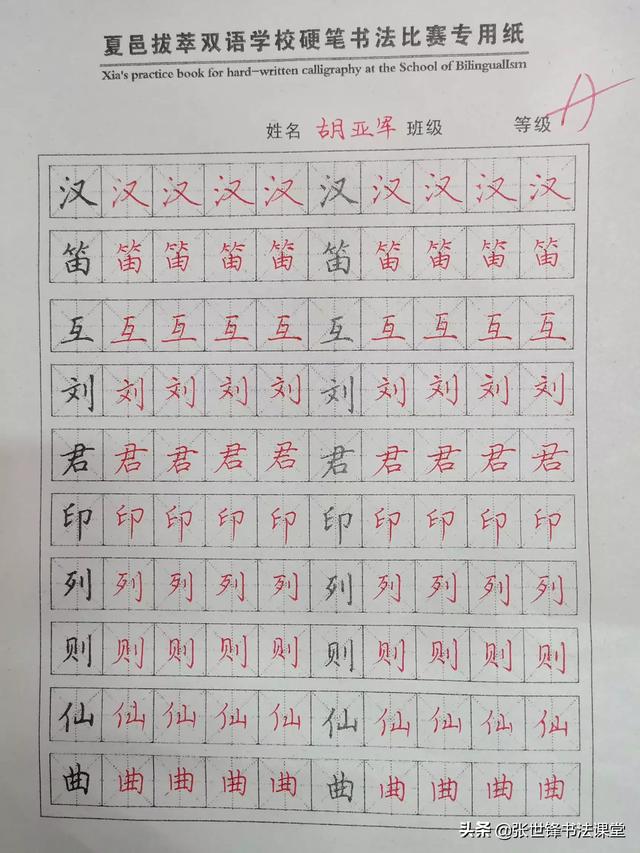 夏邑拔萃双语学校硬笔书法比赛专用纸
Xia's practice book for hard-written calligraphy at the School of BilingualIsm
姓名 胡亚军 班级 等级 A
汉汉汉汉汉汉汉汉汉汉
笛笛笛笛笛笛笛笛笛笛
互互互互互互互互互互
刘刘刘刘刘刘刘刘刘刘
君君君君君君君君君君
印印印印印印印印印印
列列列列列列列列列列
则则则则则则则则则则
仙仙仙仙仙仙仙仙仙仙
曲曲曲曲曲曲曲曲曲曲
头条 @张世锋书法课堂